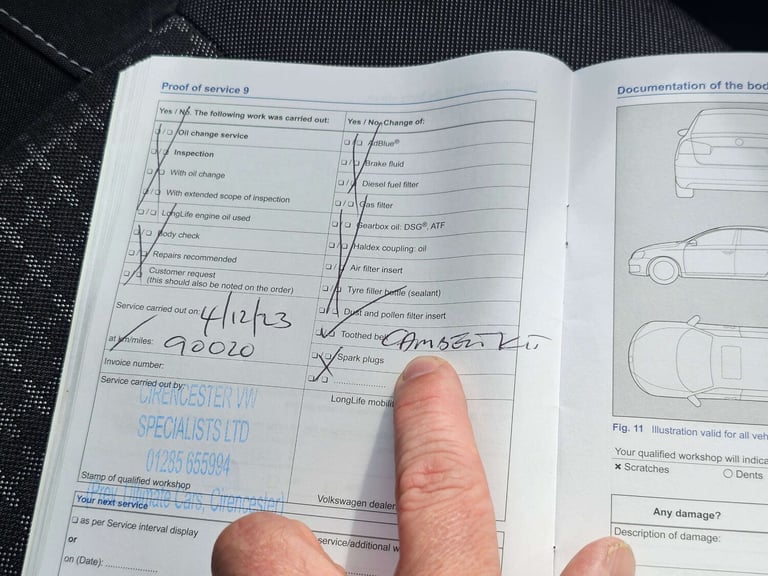 Proof of service 9
Yes / No. The following work was carried out:
Oil change service
Inspection
With oil change
With extended scope of inspection
LongLife engine oil used
Body check
Repairs recommended
Customer request
(this should also be noted on the order)
Service carried out on: 4/12/23
at km/miles: 90020
Invoice number:
Service carried out by:
CIRENCESTER VW
SPECIALISTS LTD
01285 655994
(Prev. Ultimate Cars, Cirencester)
Stamp of qualified workshop
Your next service
as per Service interval display
or
on (Date):
Yes / No, Change of:
AdBlue®
Brake fluid
Diesel fuel filter
Gas filter
Gearbox oil: DSG®, ATF
Haldex coupling: oil
Air filter insert
Tyre filler bottle (sealant)
Dust and pollen filter insert
Toothed CAMBELT KIT
Spark plugs
LongLife
Volkswagen
service/additional
Documentation of the
Fig. 11 Illustration valid for all
Your qualified workshop will
× Scratches ○ Dents
Any damage?
Description of damage: